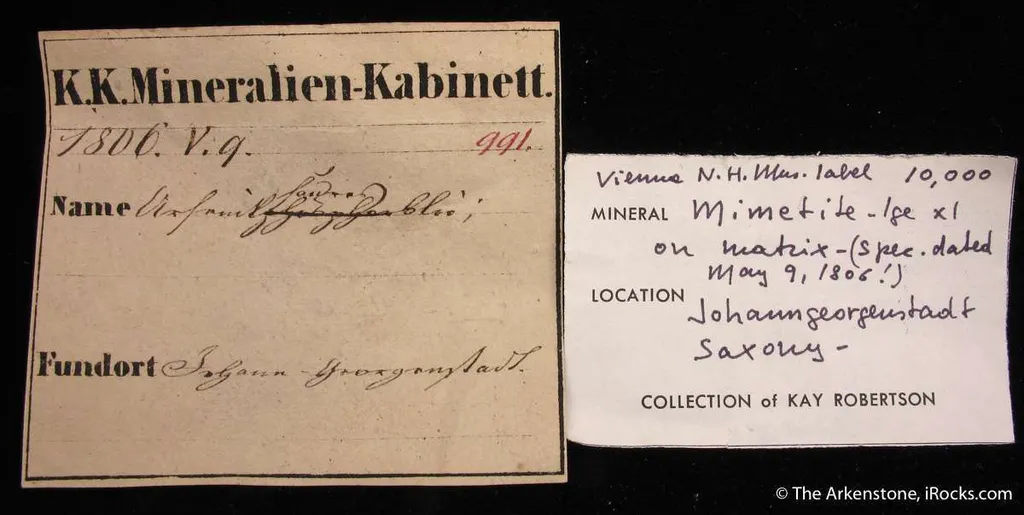 K.K.Mineralien-Kabinett.
1806. V. 9. 991.
Name Arsenik
Fundort Johann Georgenstadt.
Vienna N.H. Mus. label 10,000
MINERAL Mimetite - lge xl
on matrix - (spec. dated
May 9, 1806!)
LOCATION
Johanngeorgenstadt
Saxony -
COLLECTION of KAY ROBERTSON
© The Arkenstone, iRocks.com